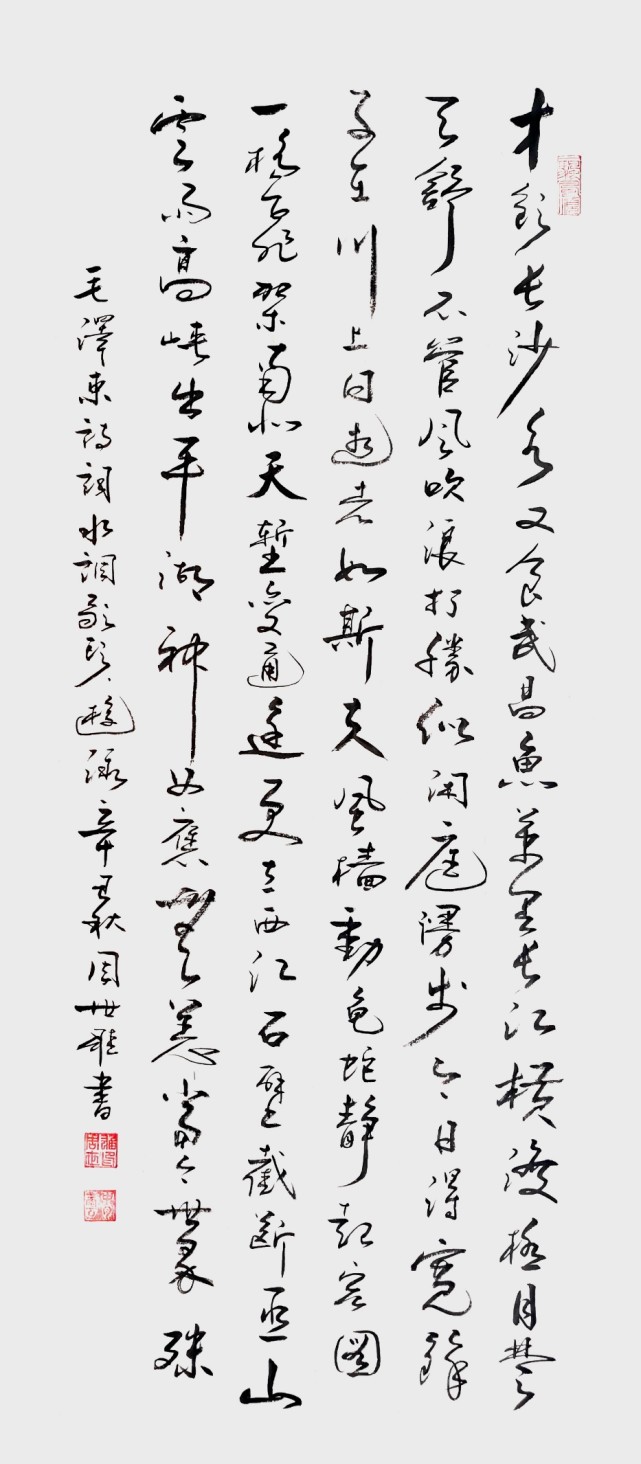 才飲長沙水又食武昌魚萬里長江橫渡極目楚
天舒不管風吹浪打勝似閑庭漫步今日得寬餘
子在川上曰逝者如斯夫風檣動龜蛇靜起宏圖
一橋飛架南北天塹變通途更立西江石壁截斷巫山
雲雨高峽出平湖神女應無恙當今世界殊
毛澤東詩詞水調歌頭遊泳辛丑秋周世雄書